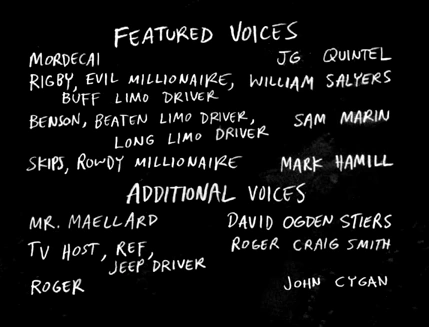 FEATURED VOICES
MORDECAI JG QUINTEL
RIGBY, EVIL MILLIONAIRE, WILLIAM SALYERS
BUFF LIMO DRIVER
BENSON, BEATEN LIMO DRIVER, SAM MARIN
LONG LIMO DRIVER
SKIPS, ROWDY MILLIONAIRE MARK HAMILL
ADDITIONAL VOICES
MR. MAELLARD DAVID OGDEN STIERS
TV HOST, REF, ROGER CRAIG SMITH
JEEP DRIVER
ROGER JOHN CYGAN